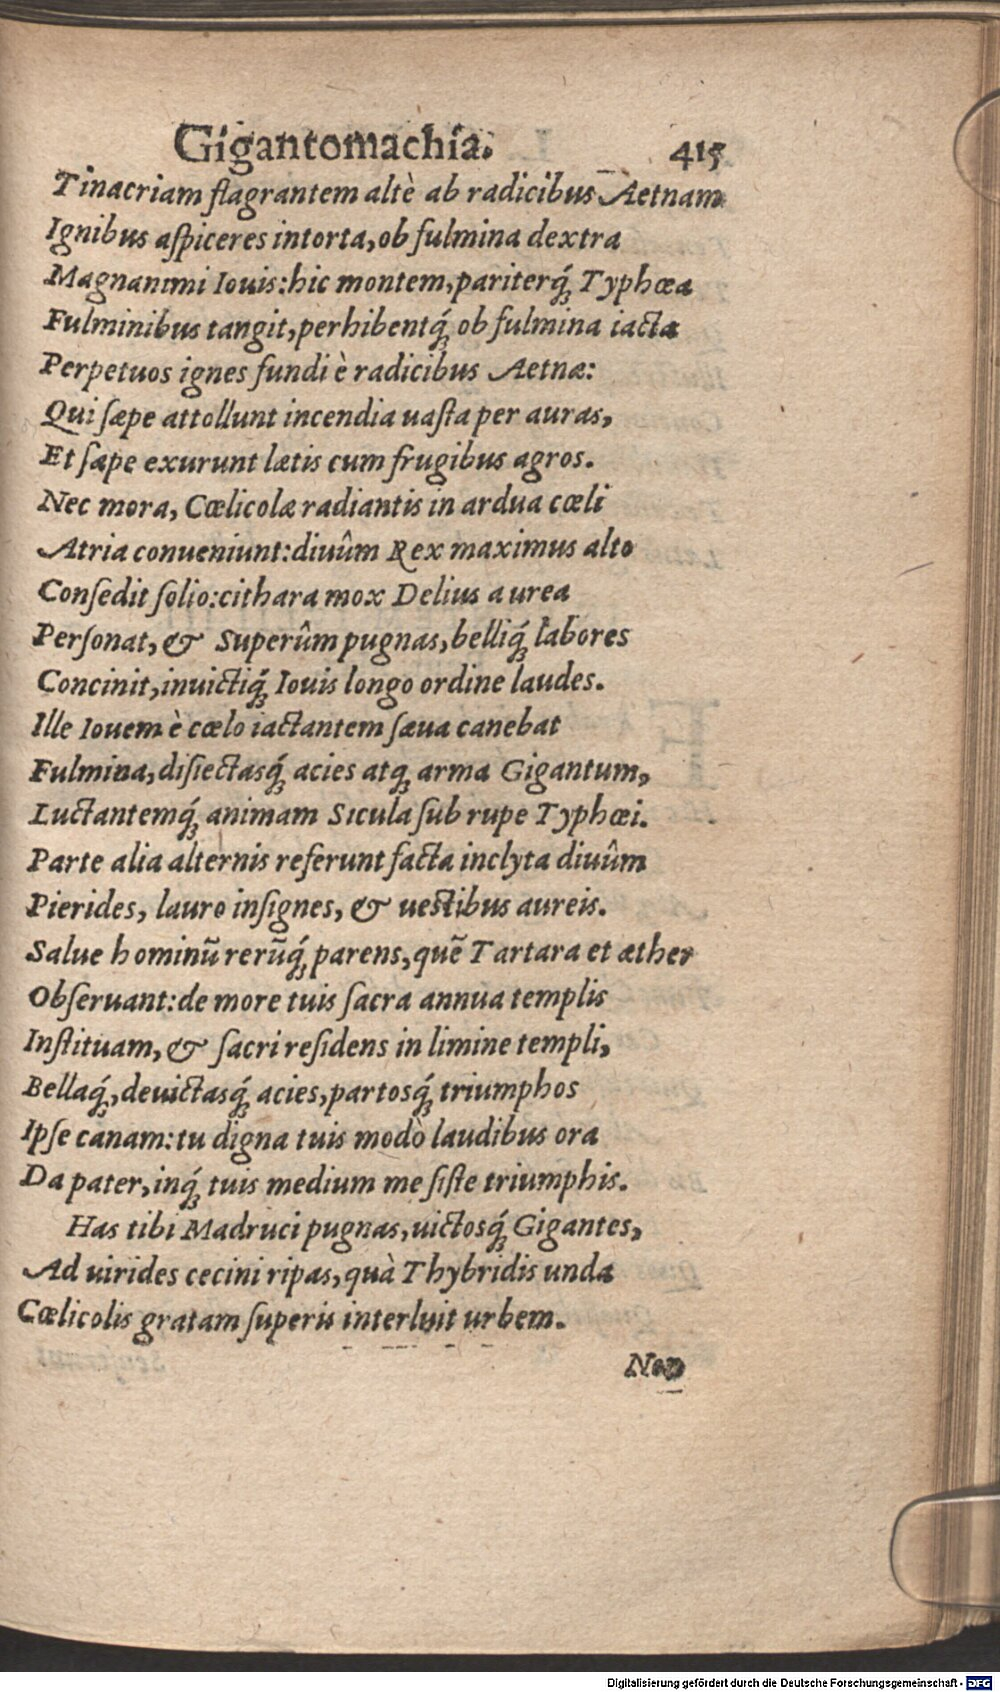 Gigantomachia. 415
Tinacriam flagrantem altè ab radicibus Aetnam
Ignibus aſpiceres intorta, ob fulmina dextra
Magnanimi Iouis: hic montem, pariterq́; Typhœa
Fulminibus tangit, perhibentq́; ob fulmina iacta
Perpetuos ignes fundi è radicibus Aetnæ:
Qui ſæpe attollunt incendia uaſta per auras,
Et ſæpe exurunt lætis cum frugibus agros.
Nec mora, Cœlicolæ radiantis in ardua cœli
Atria conueniunt: diuûm Rex maximus alto
Conſedit ſolio: cithara mox Delius aurea
Perſonat, & Superûm pugnas, belliq́; labores
Concinit, inuictiq́; Iouis longo ordine laudes.
Ille Iouem è cœlo iactantem ſæua canebat
Fulmina, diſiectasq́; acies atq; arma Gigantum,
Luctantemq́; animam Sicula ſub rupe Typhœi.
Parte alia alternis referunt facta inclyta diuûm
Pierides, lauro inſignes, & ueſtibus aureis.
Salue hominũ rerũq́; parens, quẽ Tartara et æther
Obſeruant: de more tuis ſacra annua templis
Inſtituam, & ſacri reſidens in limine templi,
Bellaq́;, deuictasq́; acies, partosq́; triumphos
Ipſe canam: tu digna tuis modò laudibus ora
Da pater, inq́; tuis medium me ſiſte triumphis.
Has tibi Madruci pugnas, uictosq́; Gigantes,
Ad uirides cecini ripas, quà Thybridis unda
Cœlicolis gratam ſuperis interluit urbem.
Non
Digitalisierung gefördert durch die Deutsche Forschungsgemeinschaft - DFG